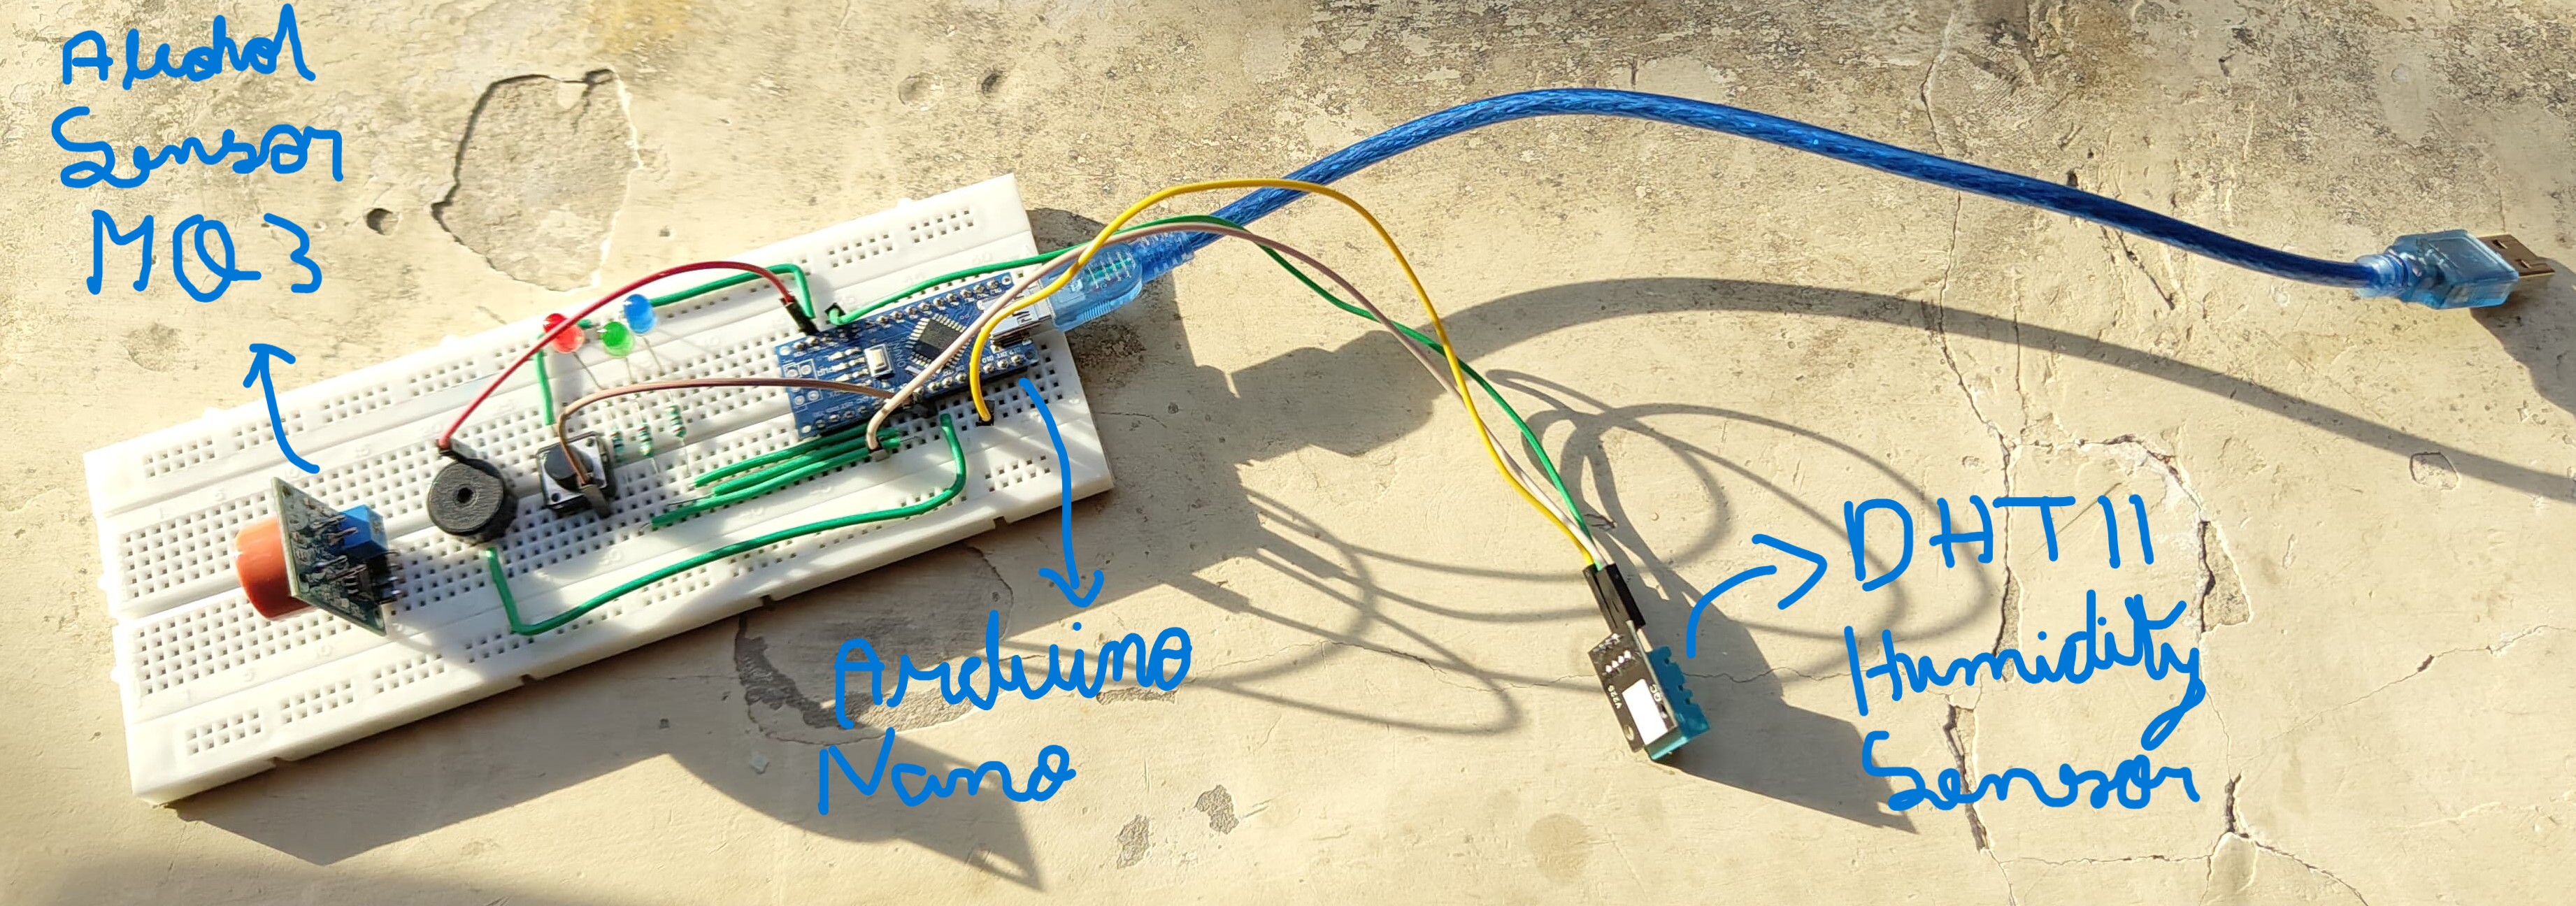 Alcohol
Sensor
MQ3
Arduino
Nano
DHT11
Humidity
Sensor